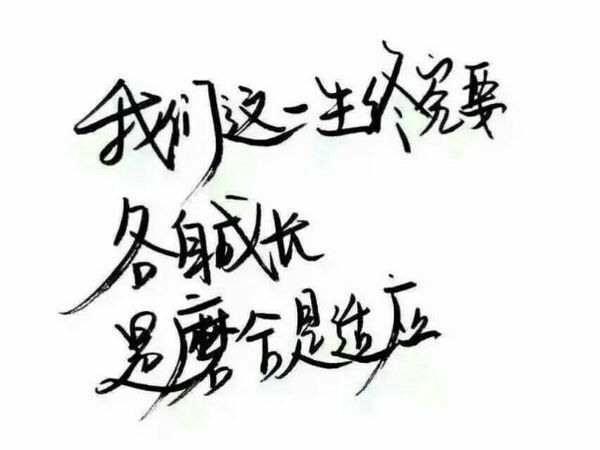 我们这一生终究要
各自成长
是磨合是适应